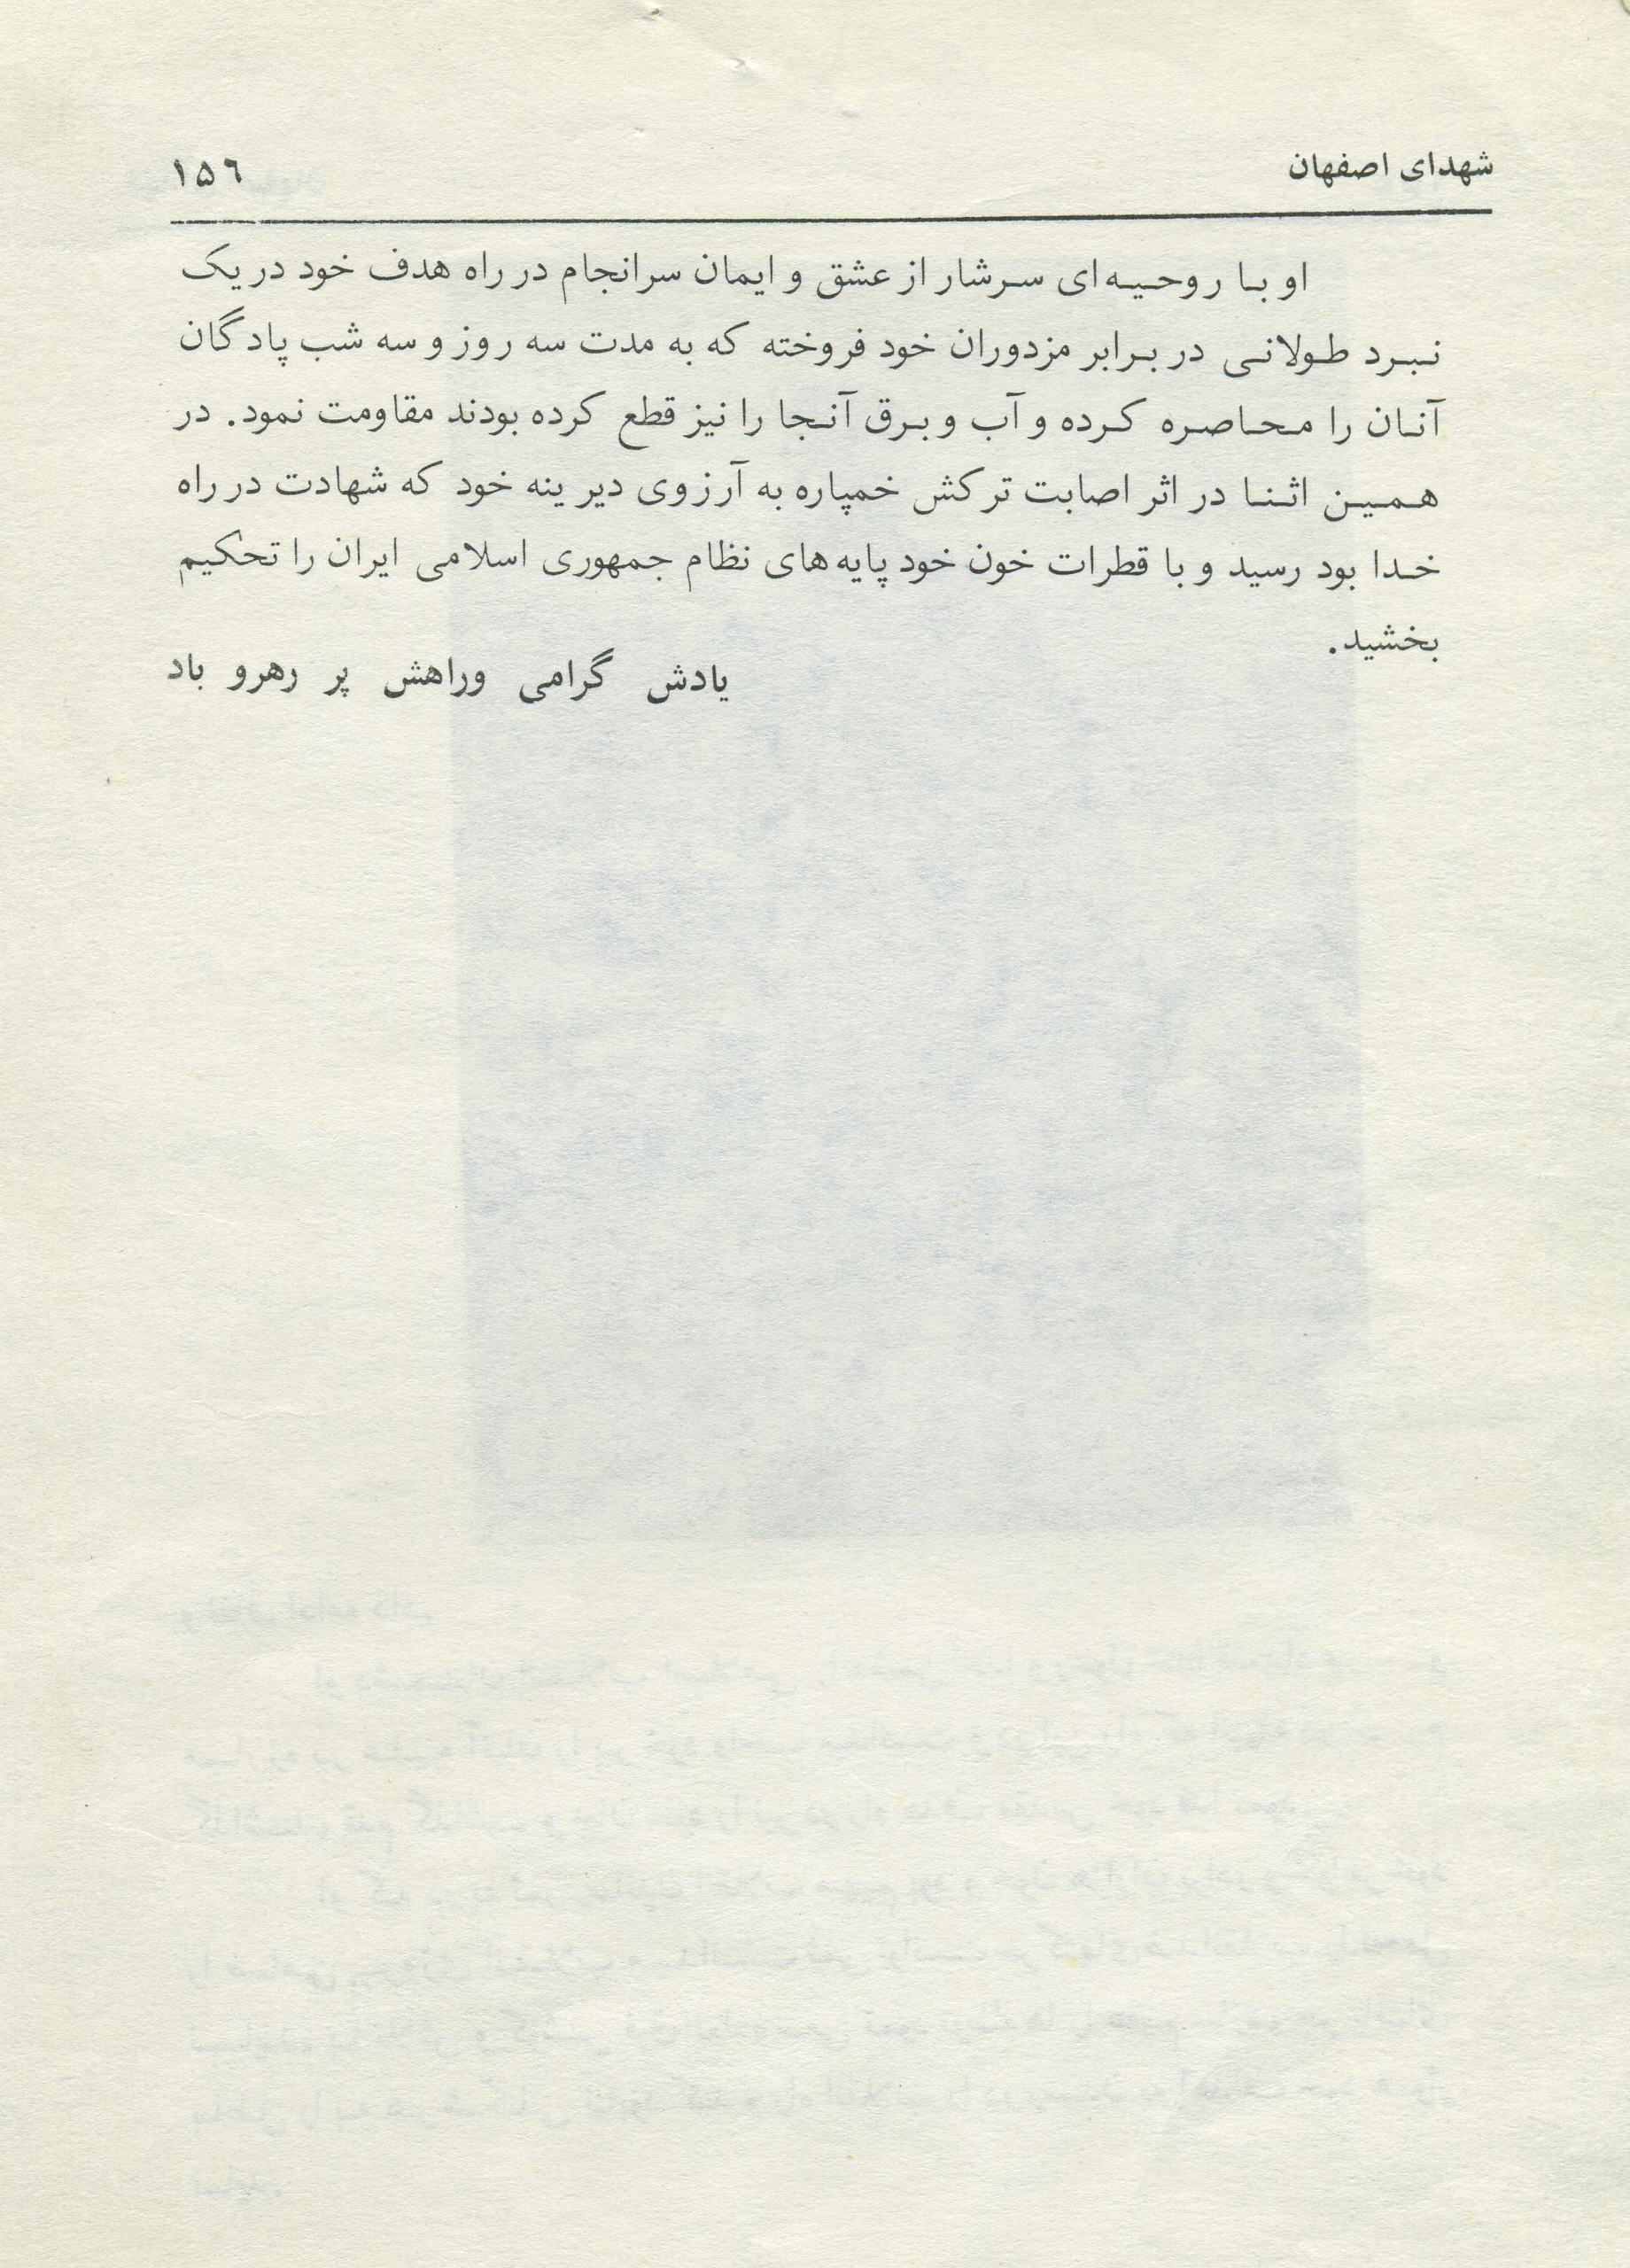 شهدای اصفهان
۱۵۶
او با روحیه‌ای سرشار از عشق و ایمان سرانجام در راه هدف خود در یک
نبرد طولانی در برابر مزدوران خود فروخته که به مدت سه روز و سه شب پادگان
آنان را محاصره کرده و آب و برق آنجا را نیز قطع کرده بودند مقاومت نمود. در
همین اثنا در اثر اصابت ترکش خمپاره به آرزوی دیرینه خود که شهادت در راه
خدا بود رسید و با قطرات خون خود پایه‌های نظام جمهوری اسلامی ایران را تحکیم
بخشید.
یادش گرامی وراهش پر رهرو باد